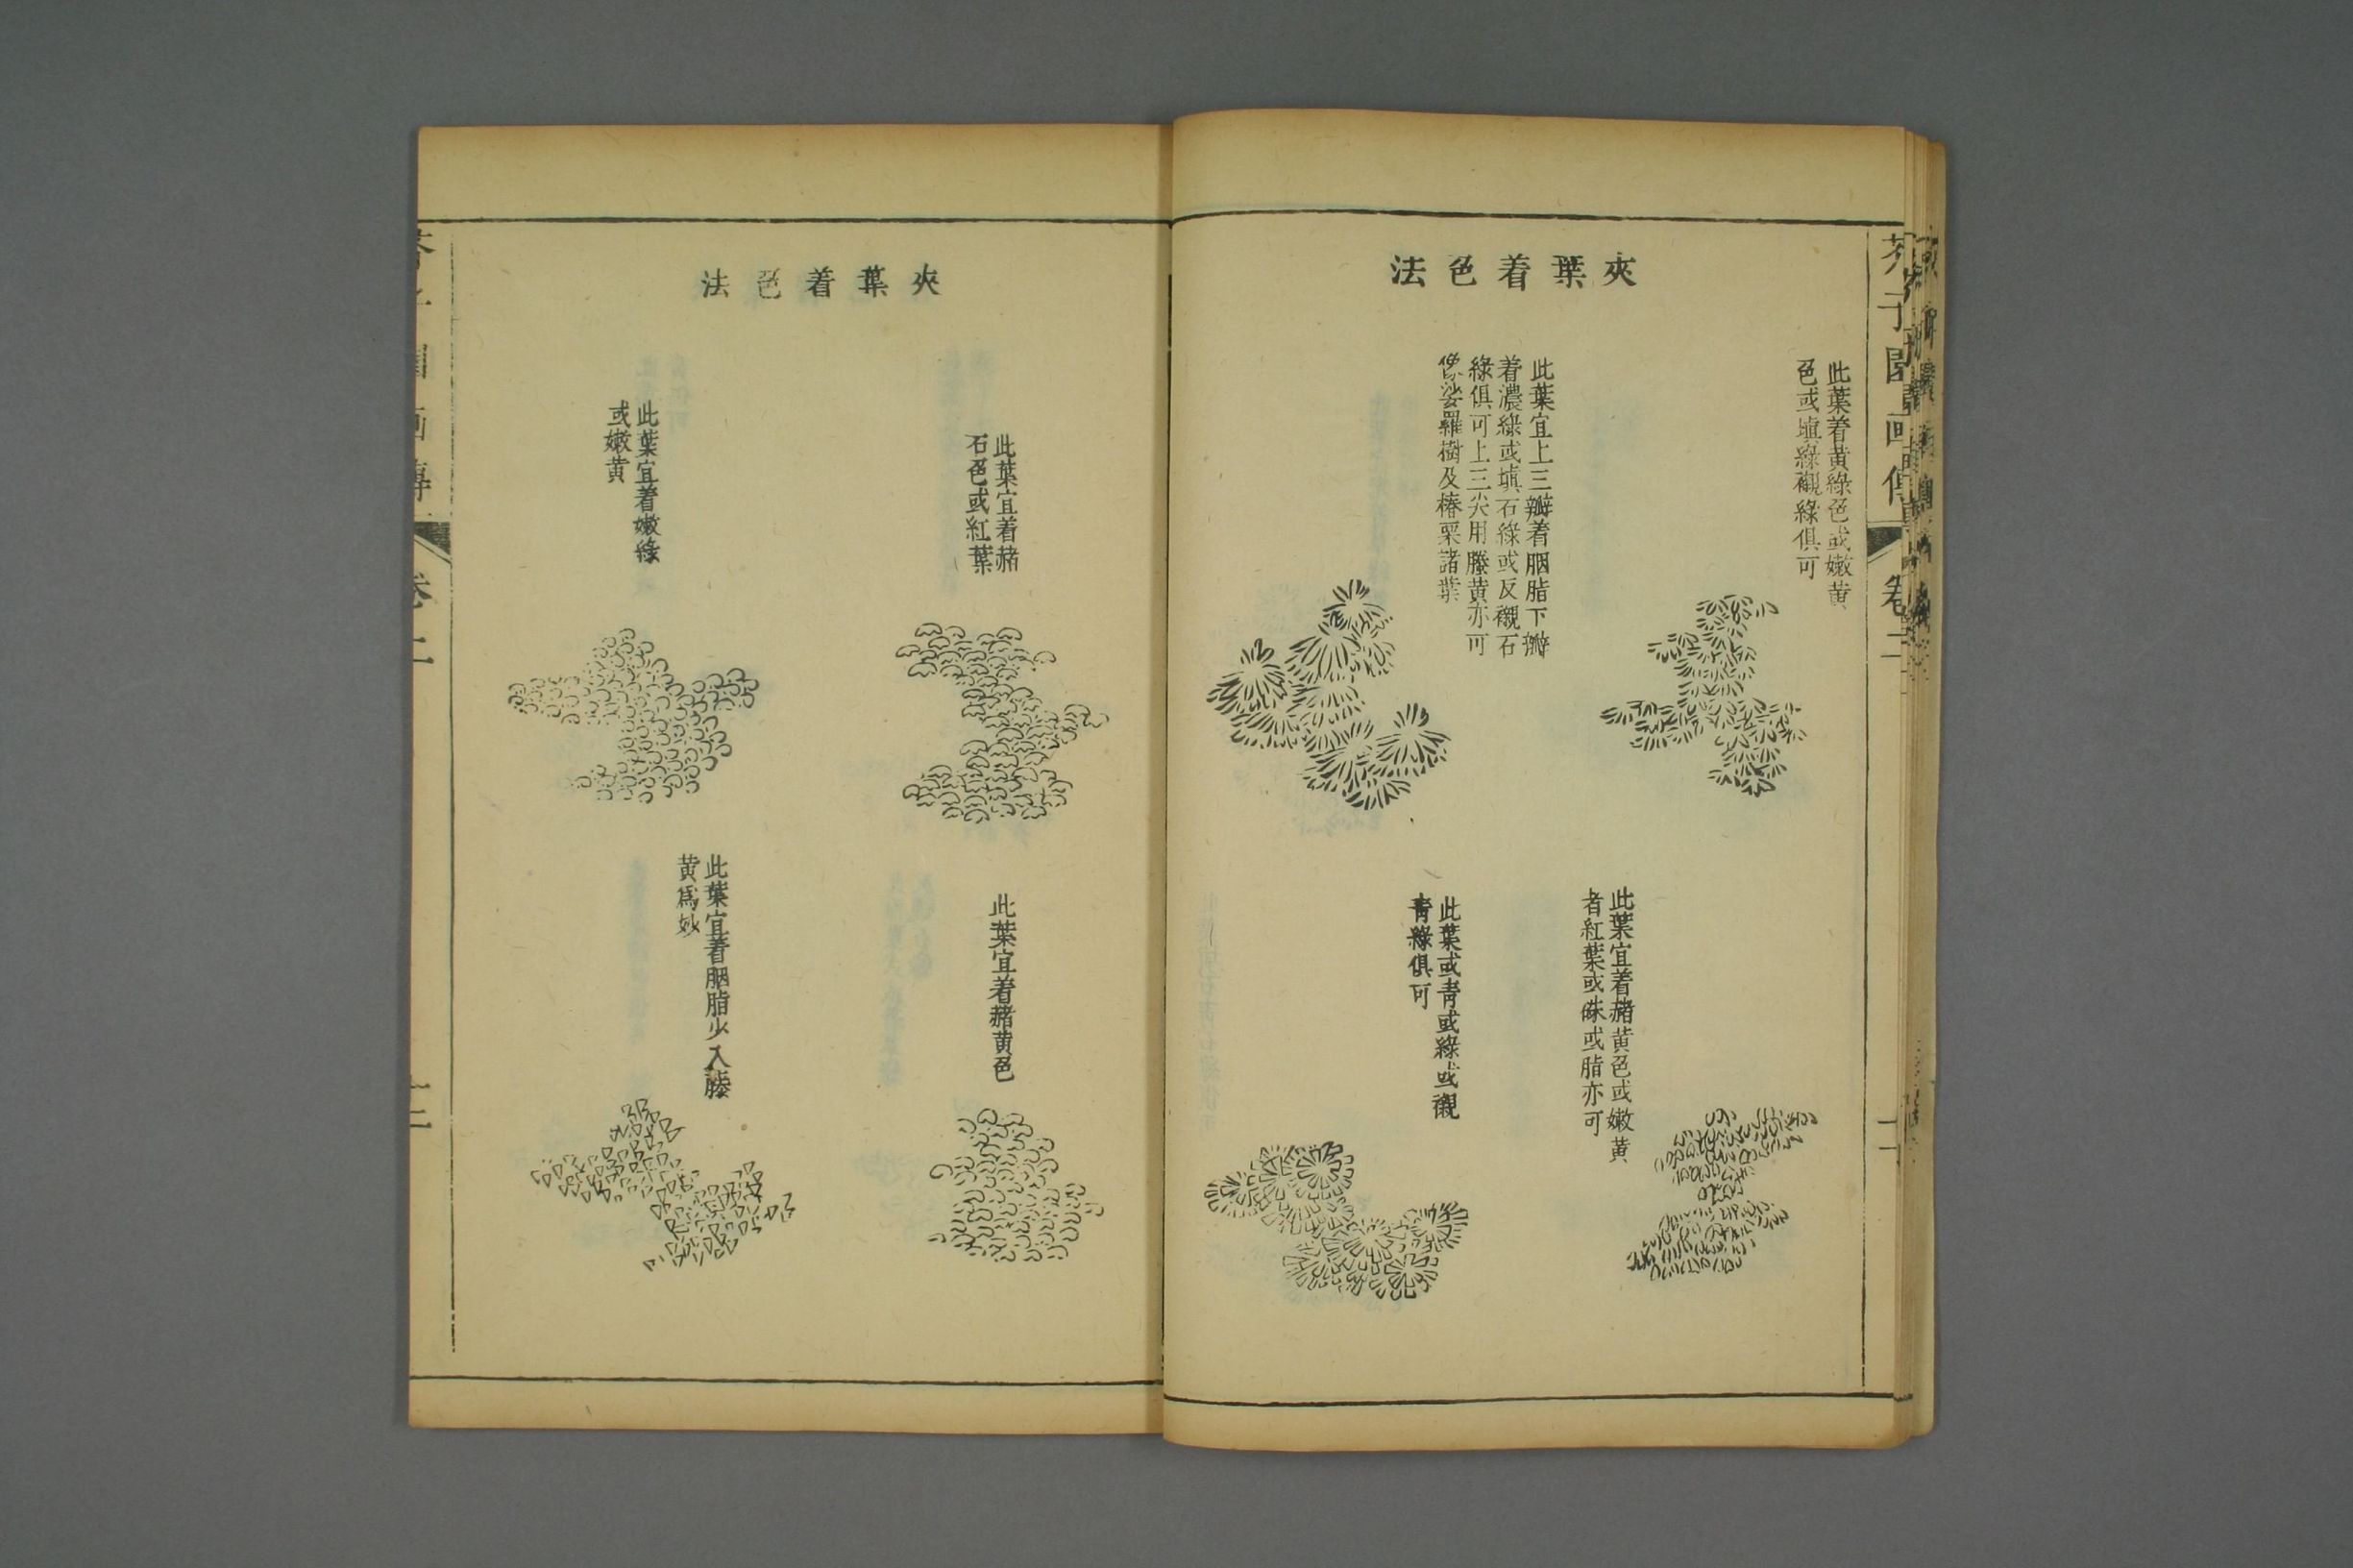 芥子園画傳
卷二
夾葉着色法
此葉着黄綠色或嫩黄
色或塡綠襯綠俱可
此葉宜上三瓣着胭脂下瓣
着濃綠或塡石綠或反襯石
綠俱可上三尖用籐黄亦可
像娑羅樹及椿栗諸葉
此葉宜着赭黄色或嫩黄
者紅葉或硃或脂亦可
此葉或青或綠或襯
青綠俱可
夾葉着色法
此葉宜着赭
石色或紅葉
此葉宜着嫩綠
或嫩黄
此葉宜着赭黄色
此葉宜着胭脂少入籐
黄爲妙
卷二